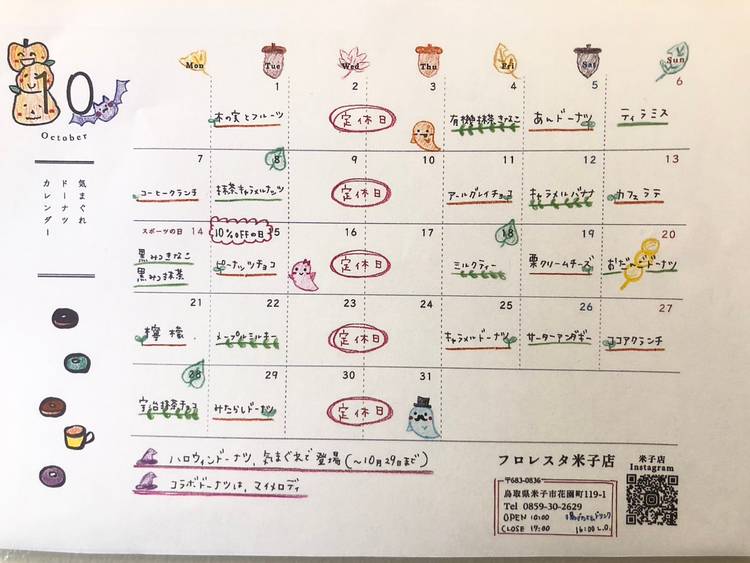 10
October
気まぐれ
ドーナツ
カレンダー
Mon Tue Wed Thu Fri Sat Sun
1 2 3 4 5 6
木の実とフルーツ 定休日 有機抹茶きなこ あんドーナツ ティラミス
7 8 9 10 11 12 13
コーヒークランチ 抹茶キャラメルナッツ 定休日 アールグレイチョコ キャラメルバナナ カフェラテ
スポーツの日 14 10%OFFの日 15 16 17 18 19 20
黒みつきなこ
黒みつ抹茶 ピーナッツチョコ 定休日 ミルクティー 栗クリームチーズ おだんごドーナツ
21 22 23 24 25 26 27
檸檬 メープルミルキー 定休日 キャラメルドーナツ サーターアンダギー ココアクランチ
28 29 30 31
宇治抹茶チョコ みたらしドーナツ 定休日
ハロウィンドーナツ、気まぐれで登場(〜10月29日まで)
コラボドーナツは、マイメロディ
フロレスタ米子店
〒683-0836
鳥取県米子市花園町119-1
Tel 0859-30-2629
OPEN 10:00
CLOSE 17:00 16:00 L.O.
米子店
Instagram